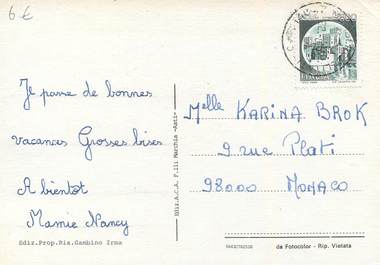 6 €
Je passe de bonnes
vacances Grosses bises
A bientot
Mamie Nancy
Ediz.Prop.Ris.Gambino Irma
Ediz.A.C.A. F.lli Marchia -Asti-
Melle KARINA BROK
9 rue Plati
98000 MONACO
da Fotocolor - Rip. Vietata